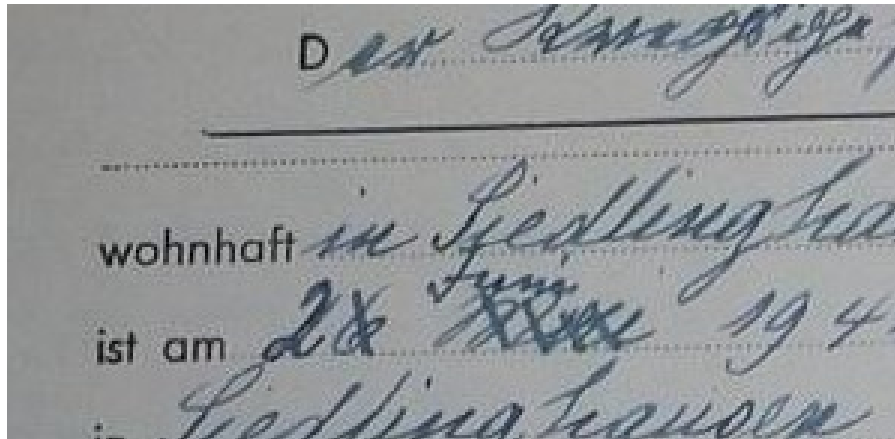 Der
wohnhaft in Siedlingha
Juni
ist am 2 19 4
in Siedlinghausen